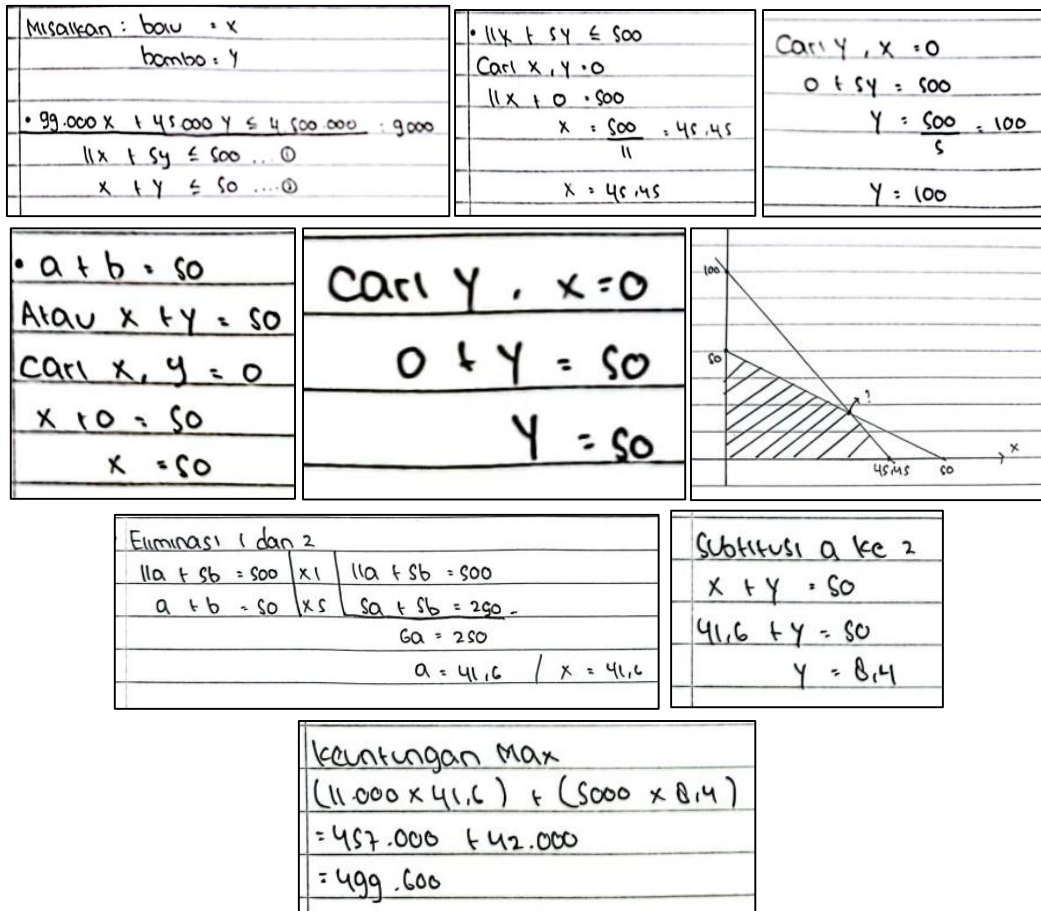 Misalkan : bau = x
bombo = y
• 99.000 x + 45.000 y ≤ 4 500.000 : 9000
11x + 5y ≤ 500 ... ①
x + y ≤ 50 .... ②
• 11x + 5y ≤ 500
Cari x, y = 0
11x + 0 = 500
x = 500/11 = 45,45
x = 45,45
Cari y, x = 0
0 + 5y = 500
y = 500/5 = 100
y = 100
• a + b = 50
Atau x + y = 50
Cari x, y = 0
x + 0 = 50
x = 50
Cari y, x = 0
0 + y = 50
y = 50
100
50
?
45,45
50
x
Eliminasi 1 dan 2
11a + 5b = 500 | x1 | 11a + 5b = 500
a + b = 50 | x5 | 5a + 5b = 250 -
6a = 250
a = 41,6 / x = 41,6
Subtitusi a ke 2
x + y = 50
41,6 + y = 50
y = 8,4
Keuntungan Max
(11.000 x 41,6) + (5000 x 8,4)
= 457.000 + 42.000
= 499.600